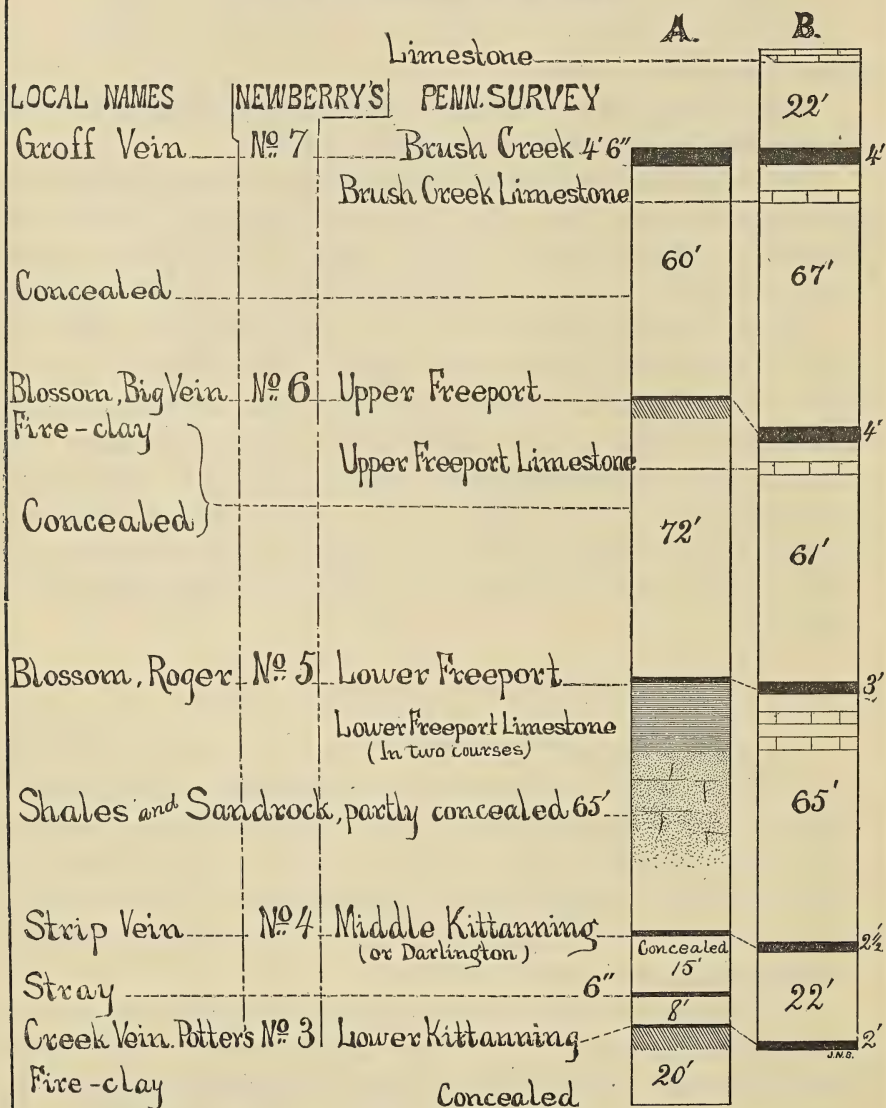 A. B.
Limestone
LOCAL NAMES NEWBERRY'S PENN. SURVEY
22'
Groff Vein No 7 Brush Creek 4' 6" 4'
Brush Creek Limestone
60'
67'
Concealed
Blossom, Big Vein No 6 Upper Freeport
Fire-clay 4'
Upper Freeport Limestone
Concealed
72'
61'
Blossom, Roger No 5 Lower Freeport 3'
Lower Freeport Limestone
(In two courses)
Shales and Sandrock, partly concealed 65' 65'
Strip Vein No 4 Middle Kittanning 2½
(or Darlington) Concealed
15'
Stray 6"
22'
8'
Creek Vein. Potter's No 3 Lower Kittanning 2'
J.N.B.
Fire-clay 20'
Concealed